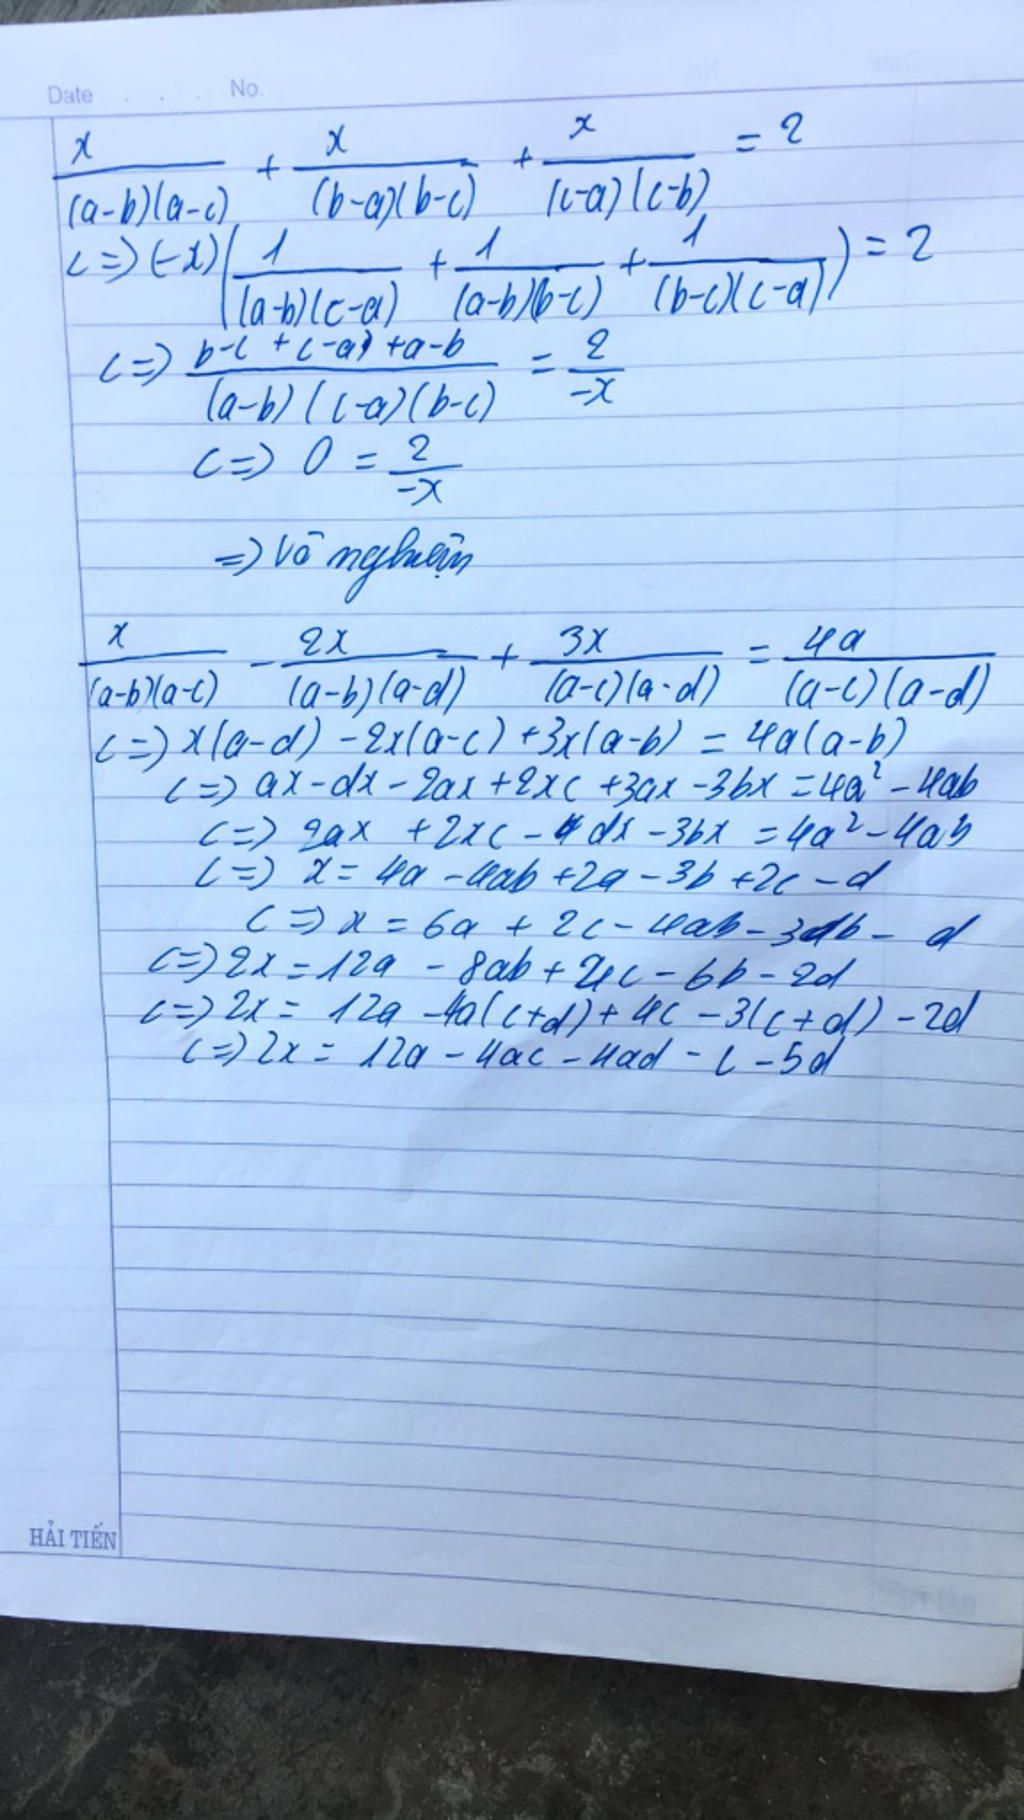 Date . . . No.
x/((a-b)(a-c)) + x/((b-a)(b-c)) + x/((c-a)(c-b)) = 2
<=> (-x)(1/((a-b)(c-a)) + 1/((a-b)(b-c)) + 1/((b-c)(c-a))) = 2
<=> (b-c + c-a + a-b)/((a-b)(c-a)(b-c)) = 2/(-x)
<=> 0 = 2/(-x)
=> Vô nghiệm
x/((a-b)(a-c)) - 2x/((a-b)(a-d)) + 3x/((a-c)(a-d)) = 4a/((a-c)(a-d))
<=> x(a-d) - 2x(a-c) + 3x(a-b) = 4a(a-b)
<=> ax - dx - 2ax + 2xc + 3ax - 3bx = 4a² - 4ab
<=> 2ax + 2xc - dx - 3bx = 4a² - 4ab
<=> x = 4a - 4ab + 2a - 3b + 2c - d
<=> x = 6a + 2c - 4ab - 3b - d
<=> 2x = 12a - 8ab + 4c - 6b - 2d
<=> 2x = 12a - 4a(c+d) + 4c - 3(c+d) - 2d
<=> 2x = 12a - 4ac - 4ad - c - 5d
HẢI TIẾN